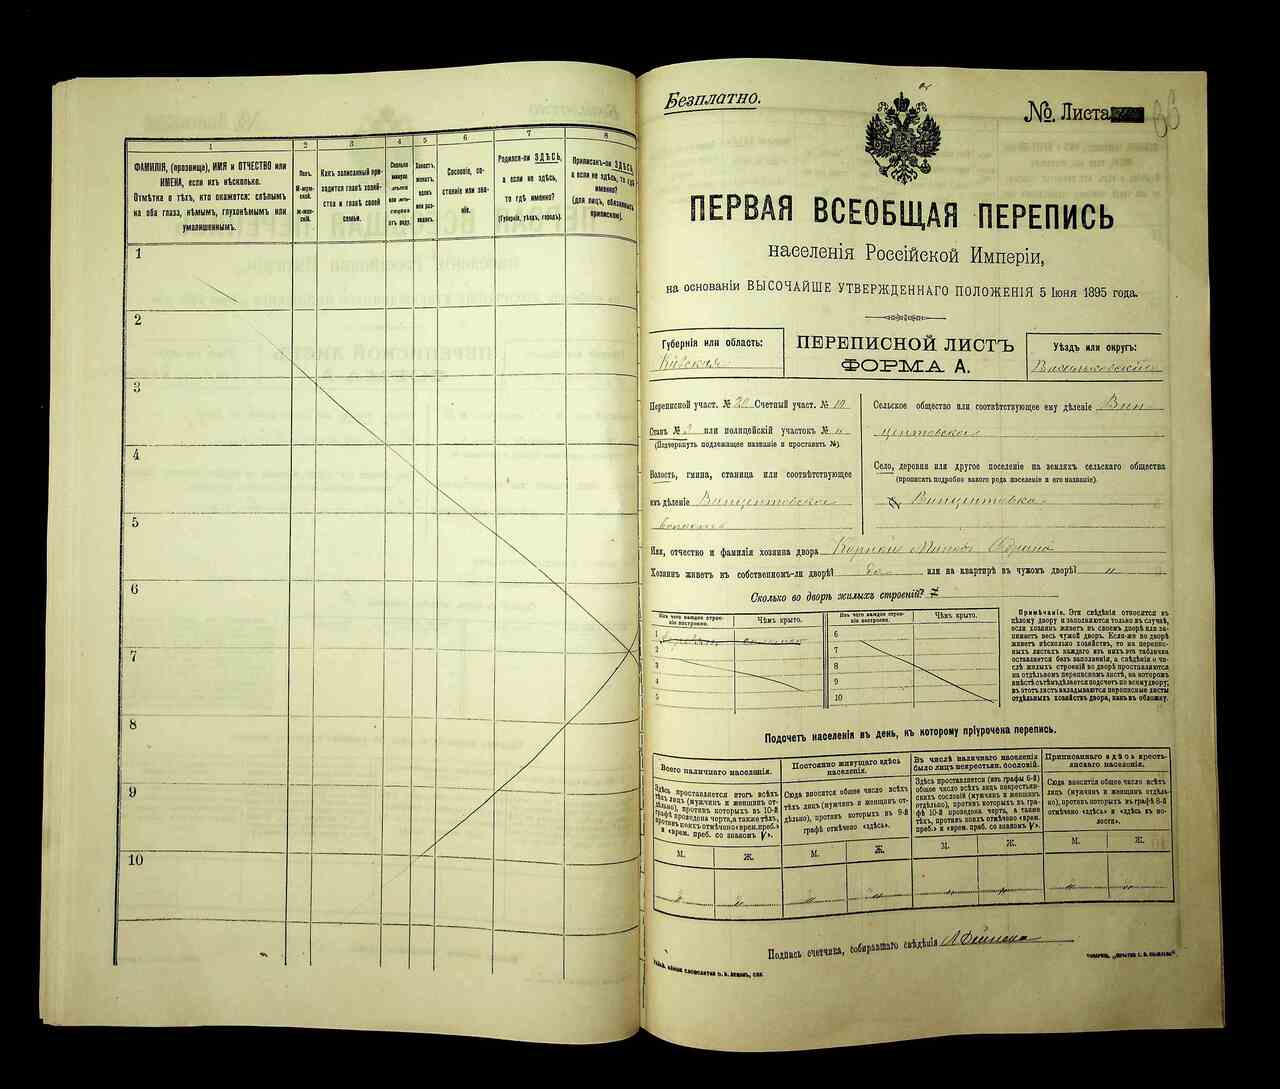 1
2
3
4
5
6
7
8
ФАМИЛІЯ, (прозвища), ИМЯ и ОТЧЕСТВО или
ИМЕНА, если ихъ нѣсколько.
Отмѣтка о тѣхъ, кто окажется: слѣпымъ
на оба глаза, нѣмымъ, глухонѣмымъ или
умалишеннымъ.
Полъ.
М-мужской.
Ж-женскій.
Какъ записанный приходится главѣ хозяйства и главѣ своей
семьи.
Сколько
минуло
лѣтъ
или мѣсяцевъ
отъ роду.
Холостъ,
женатъ,
вдовъ
или разведенъ.
Сословіе, состояніе или званіе.
Родился-ли ЗДѢСЬ,
а если не здѣсь,
то гдѣ именно?
(Губернія, уѣздъ, городъ).
Приписанъ-ли ЗДѢСЬ,
а если не здѣсь, то гдѣ
именно?
(для лицъ, обязанныхъ
припискою).
1
2
3
4
5
6
7
8
9
10
Безплатно.
№ Листа
ПЕРВАЯ ВСЕОБЩАЯ ПЕРЕПИСЬ
населенія Россійской Имперіи,
на основаніи ВЫСОЧАЙШЕ УТВЕРЖДЕННАГО ПОЛОЖЕНІЯ 5 Іюня 1895 года.
Губернія или область:
Кіевская
ПЕРЕПИСНОЙ ЛИСТЪ
ФОРМА А.
Уѣздъ или округъ:
Переписной участ. № 20 Счетный участ. № 10
Станъ № 3 или полицейскій участокъ № „
(Подчеркнуть подлежащее названіе и проставить №)
Волость, гмина, станица или соотвѣтствующее
имъ дѣленіе Винцентовская
волость
Сельское общество или соотвѣтствующее ему дѣленіе Вин
центовское
Село, деревня или другое поселеніе на земляхъ сельскаго общества
(прописать подробно какого рода поселеніе и его названіе).
Винцентовка
Имя, отчество и фамилія хозяина двора
Хозяинъ живетъ въ собственномъ-ли дворѣ? Да или на квартирѣ въ чужомъ дворѣ? „
Сколько во дворѣ жилыхъ строеній?
Изъ чего каждое строеніе построено.
Чѣмъ крыто.
Изъ чего каждое строеніе построено.
Чѣмъ крыто.
1
2
3
4
5
6
7
8
9
10
Примѣчаніе. Эти свѣдѣнія относятся къ
цѣлому двору и заполняются только въ случаѣ,
если хозяинъ живетъ въ своемъ дворѣ или занимаетъ весь чужой дворъ. Если-же во дворѣ
живетъ нѣсколько хозяйствъ, то на переписныхъ листахъ каждаго изъ нихъ эта табличка
оставляется безъ заполненія, а свѣдѣнія о числѣ жилыхъ строеній во дворѣ проставляются
на отдѣльномъ переписномъ листѣ, на которомъ
вмѣстѣ съ тѣмъ дѣлается подсчетъ по всему двору;
въ этотъ листъ вкладываются переписные листы
отдѣльныхъ хозяйствъ двора, какъ въ обложку.
Подсчетъ населенія въ день, къ которому пріурочена перепись.
Всего наличнаго населенія.
Здѣсь проставляется итогъ всѣхъ
тѣхъ лицъ (мужчинъ и женщинъ отдѣльно), противъ которыхъ въ 10-й
графѣ проведена черта, а также тѣхъ,
противъ коихъ отмѣчено «врем. преб.»
и «врем. преб. со знакомъ V».
Постоянно живущаго здѣсь
населенія.
Сюда вносится общее число всѣхъ
тѣхъ лицъ (мужчинъ и женщинъ отдѣльно), противъ которыхъ въ 9-й
графѣ отмѣчено «здѣсь».
Въ числѣ наличнаго населенія
было лицъ некрестьян. сословій.
Здѣсь проставляется (изъ графы 6-й)
общее число всѣхъ лицъ некрестьянскихъ сословій (мужчинъ и женщинъ
отдѣльно), противъ которыхъ въ графѣ 10-й проведена черта, а также
тѣхъ, противъ коихъ отмѣчено «врем.
преб.» и «врем. преб. со знакомъ V».
Приписаннаго здѣсь крестьянскаго населенія.
Сюда вносится общее число всѣхъ
лицъ (мужчинъ и женщинъ отдѣльно), противъ которыхъ въ графѣ 8-й
отмѣчено «здѣсь» и «здѣсь въ волости».
М.
Ж.
М.
Ж.
М.
Ж.
М.
Ж.
Подпись счетчика, собиравшаго свѣдѣнія